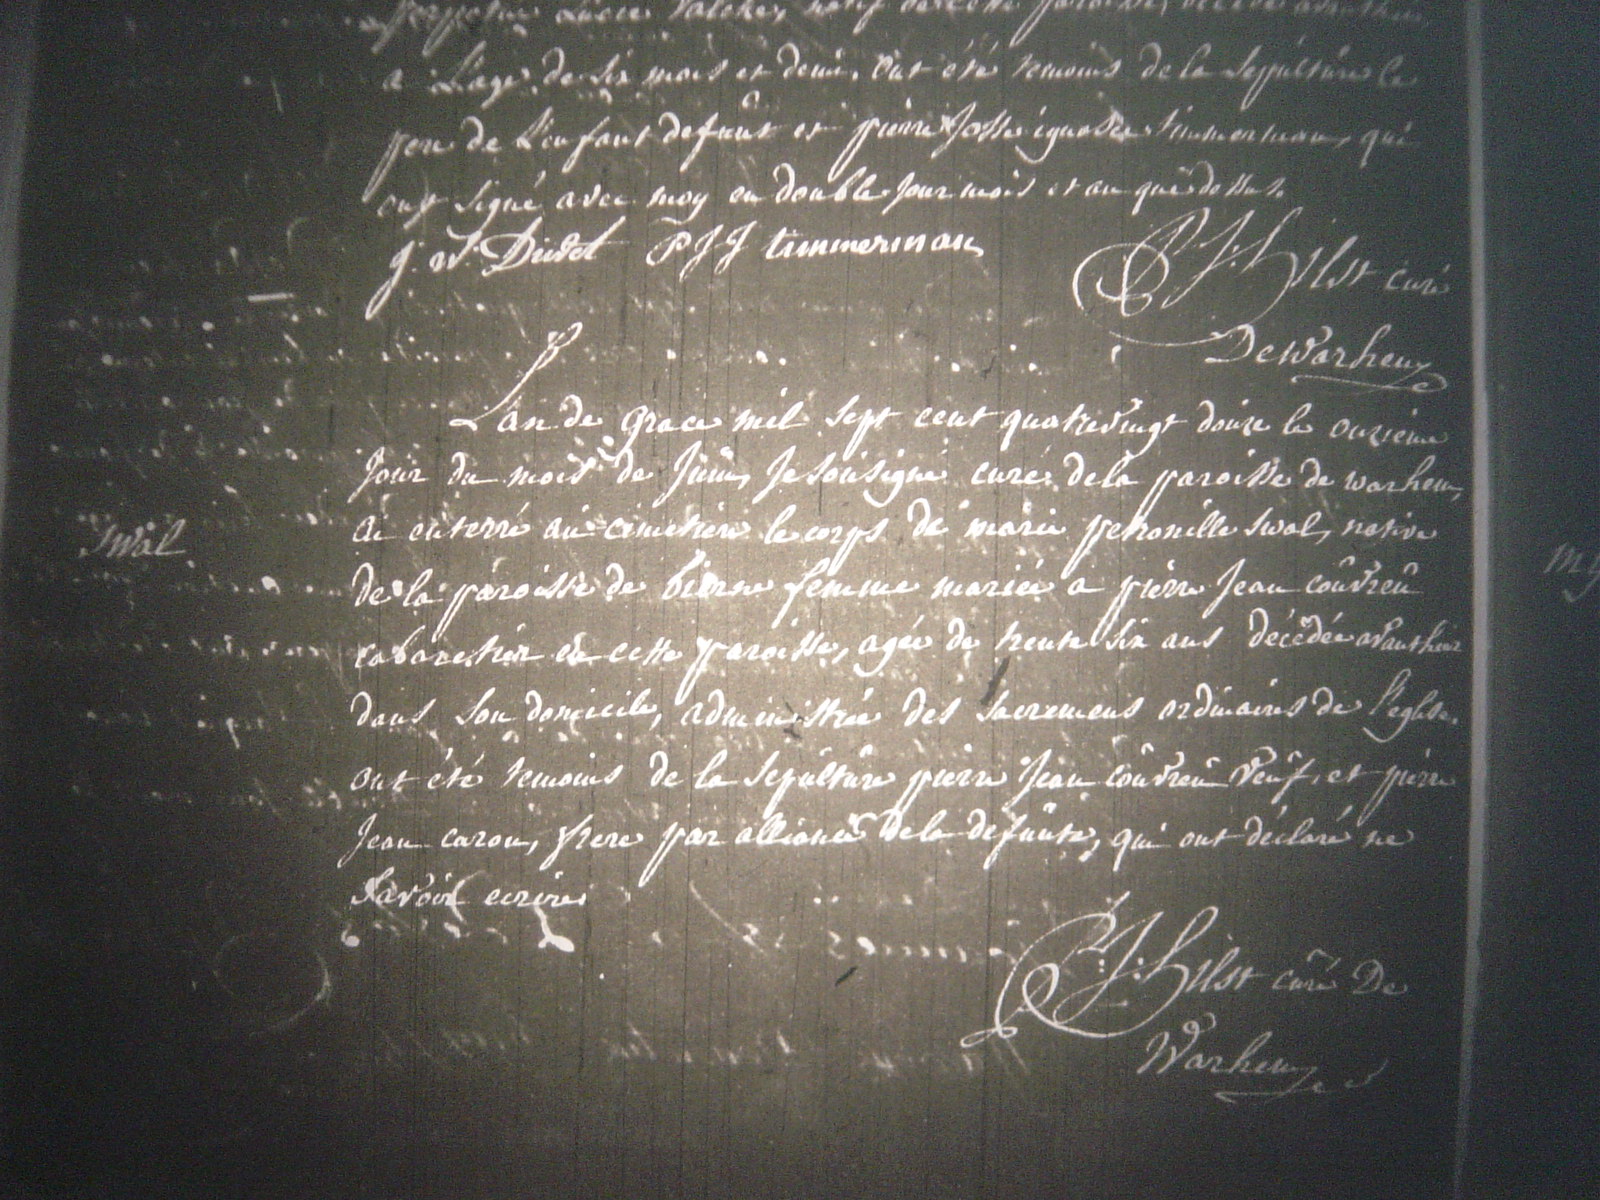 perpetue Lucie natif de cette paroisse, décédé avanthier
a L'age de six mois et demi. Ont été temoins de la sepulture le
pere de L'enfant defunt et pierre Josse ignace timmerman, qui
ont signé avec moy en double Jour mois et an que dessus.
P J J timmerman
P. J. Hilst curé
De Warhem
L'an de grace mil sept cent quatrevingt douze le onzieme
Jour du mois de Juin, Je soùsigné curé de la paroisse de warhem,
ai enterré au cimetière le corps de marie petronille Swal, native
de la paroisse de bierne femme mariée a pierre Jean coûvreû
cabaretier en cette paroisse, agée de trente six ans décédée avanthier
dans son domicile, administrée des sacremens ordinaires de l'eglise.
ont été temoins de la sepùltùre pierre Jean coûvreû veuf, et pierre
Jean carou, frere par alliance de la defùnte, qui ont déclaré ne
savoir ecrire
Swal
P. J. Hilst curé De
Warhem